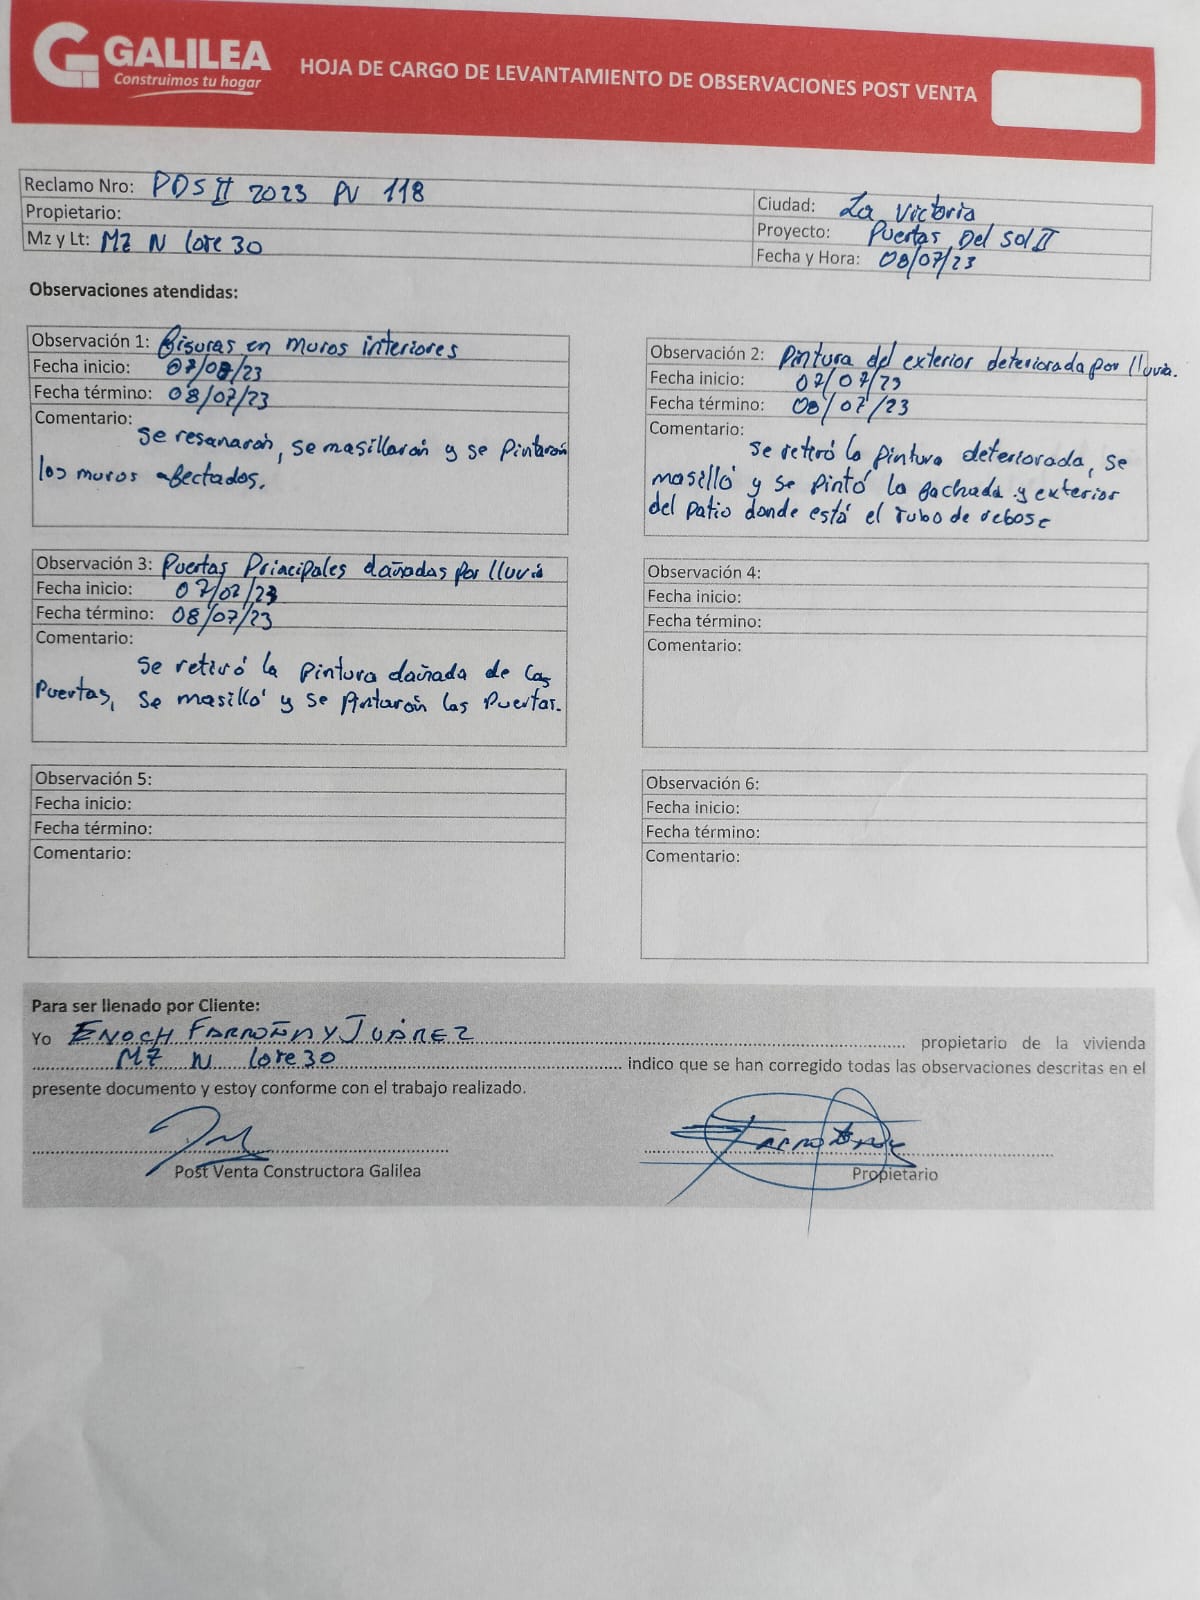 GALILEA
Construimos tu hogar
HOJA DE CARGO DE LEVANTAMIENTO DE OBSERVACIONES POST VENTA
Reclamo Nro: PDS II 2023 PV 118
Propietario:
Mz y Lt: MZ N lote 30
Ciudad: La Victoria
Proyecto: Puertas Del Sol II
Fecha y Hora: 08/07/23
Observaciones atendidas:
Observación 1: Fisuras en muros interiores
Fecha inicio: 07/07/23
Fecha término: 08/07/23
Comentario:
Se resanarón, se masillarón y se pintarón
los muros afectados.
Observación 2: Pintura del exterior deteriorada por lluvia.
Fecha inicio: 07/07/23
Fecha término: 08/07/23
Comentario:
Se retiró la pintura deteriorada, se
masilló y se pintó la fachada y exterior
del patio donde está el tubo de rebose
Observación 3: Puertas Principales dañadas por lluvia
Fecha inicio: 07/07/23
Fecha término: 08/07/23
Comentario:
Se retiró la pintura dañada de las
puertas, se masilló y se pintarón las puertas.
Observación 4:
Fecha inicio:
Fecha término:
Comentario:
Observación 5:
Fecha inicio:
Fecha término:
Comentario:
Observación 6:
Fecha inicio:
Fecha término:
Comentario:
Para ser llenado por Cliente:
Yo ENOCH FARROÑAY JUÁREZ propietario de la vivienda
MZ N lote 30 indico que se han corregido todas las observaciones descritas en el
presente documento y estoy conforme con el trabajo realizado.
Post Venta Constructora Galilea
Propietario